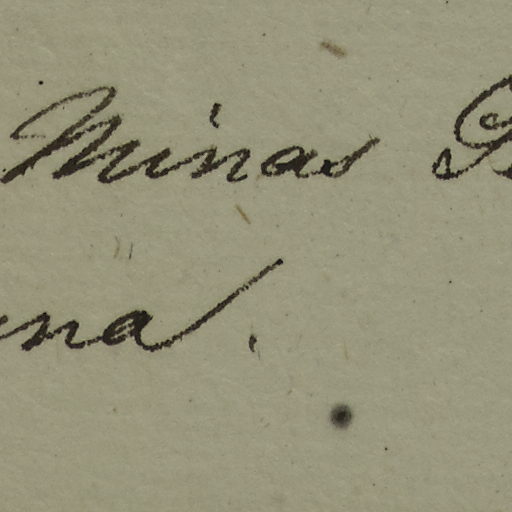 Minas
na.